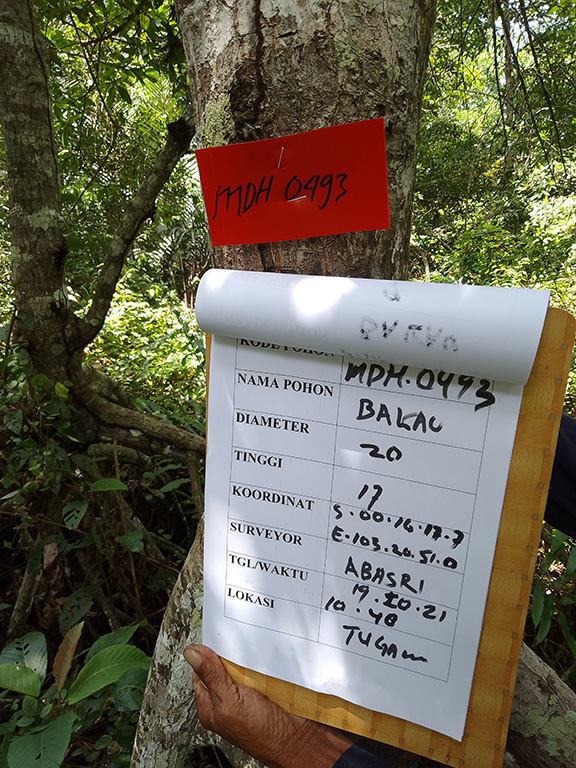 MDH 0493
KODE POHON MDH.0493
NAMA POHON BAKAU
DIAMETER 20
TINGGI 17
KOORDINAT S.00.16.17.7
E.103.20.51.0
SURVEYOR ABASRI
TGL/WAKTU 17.10.21
10.48
LOKASI